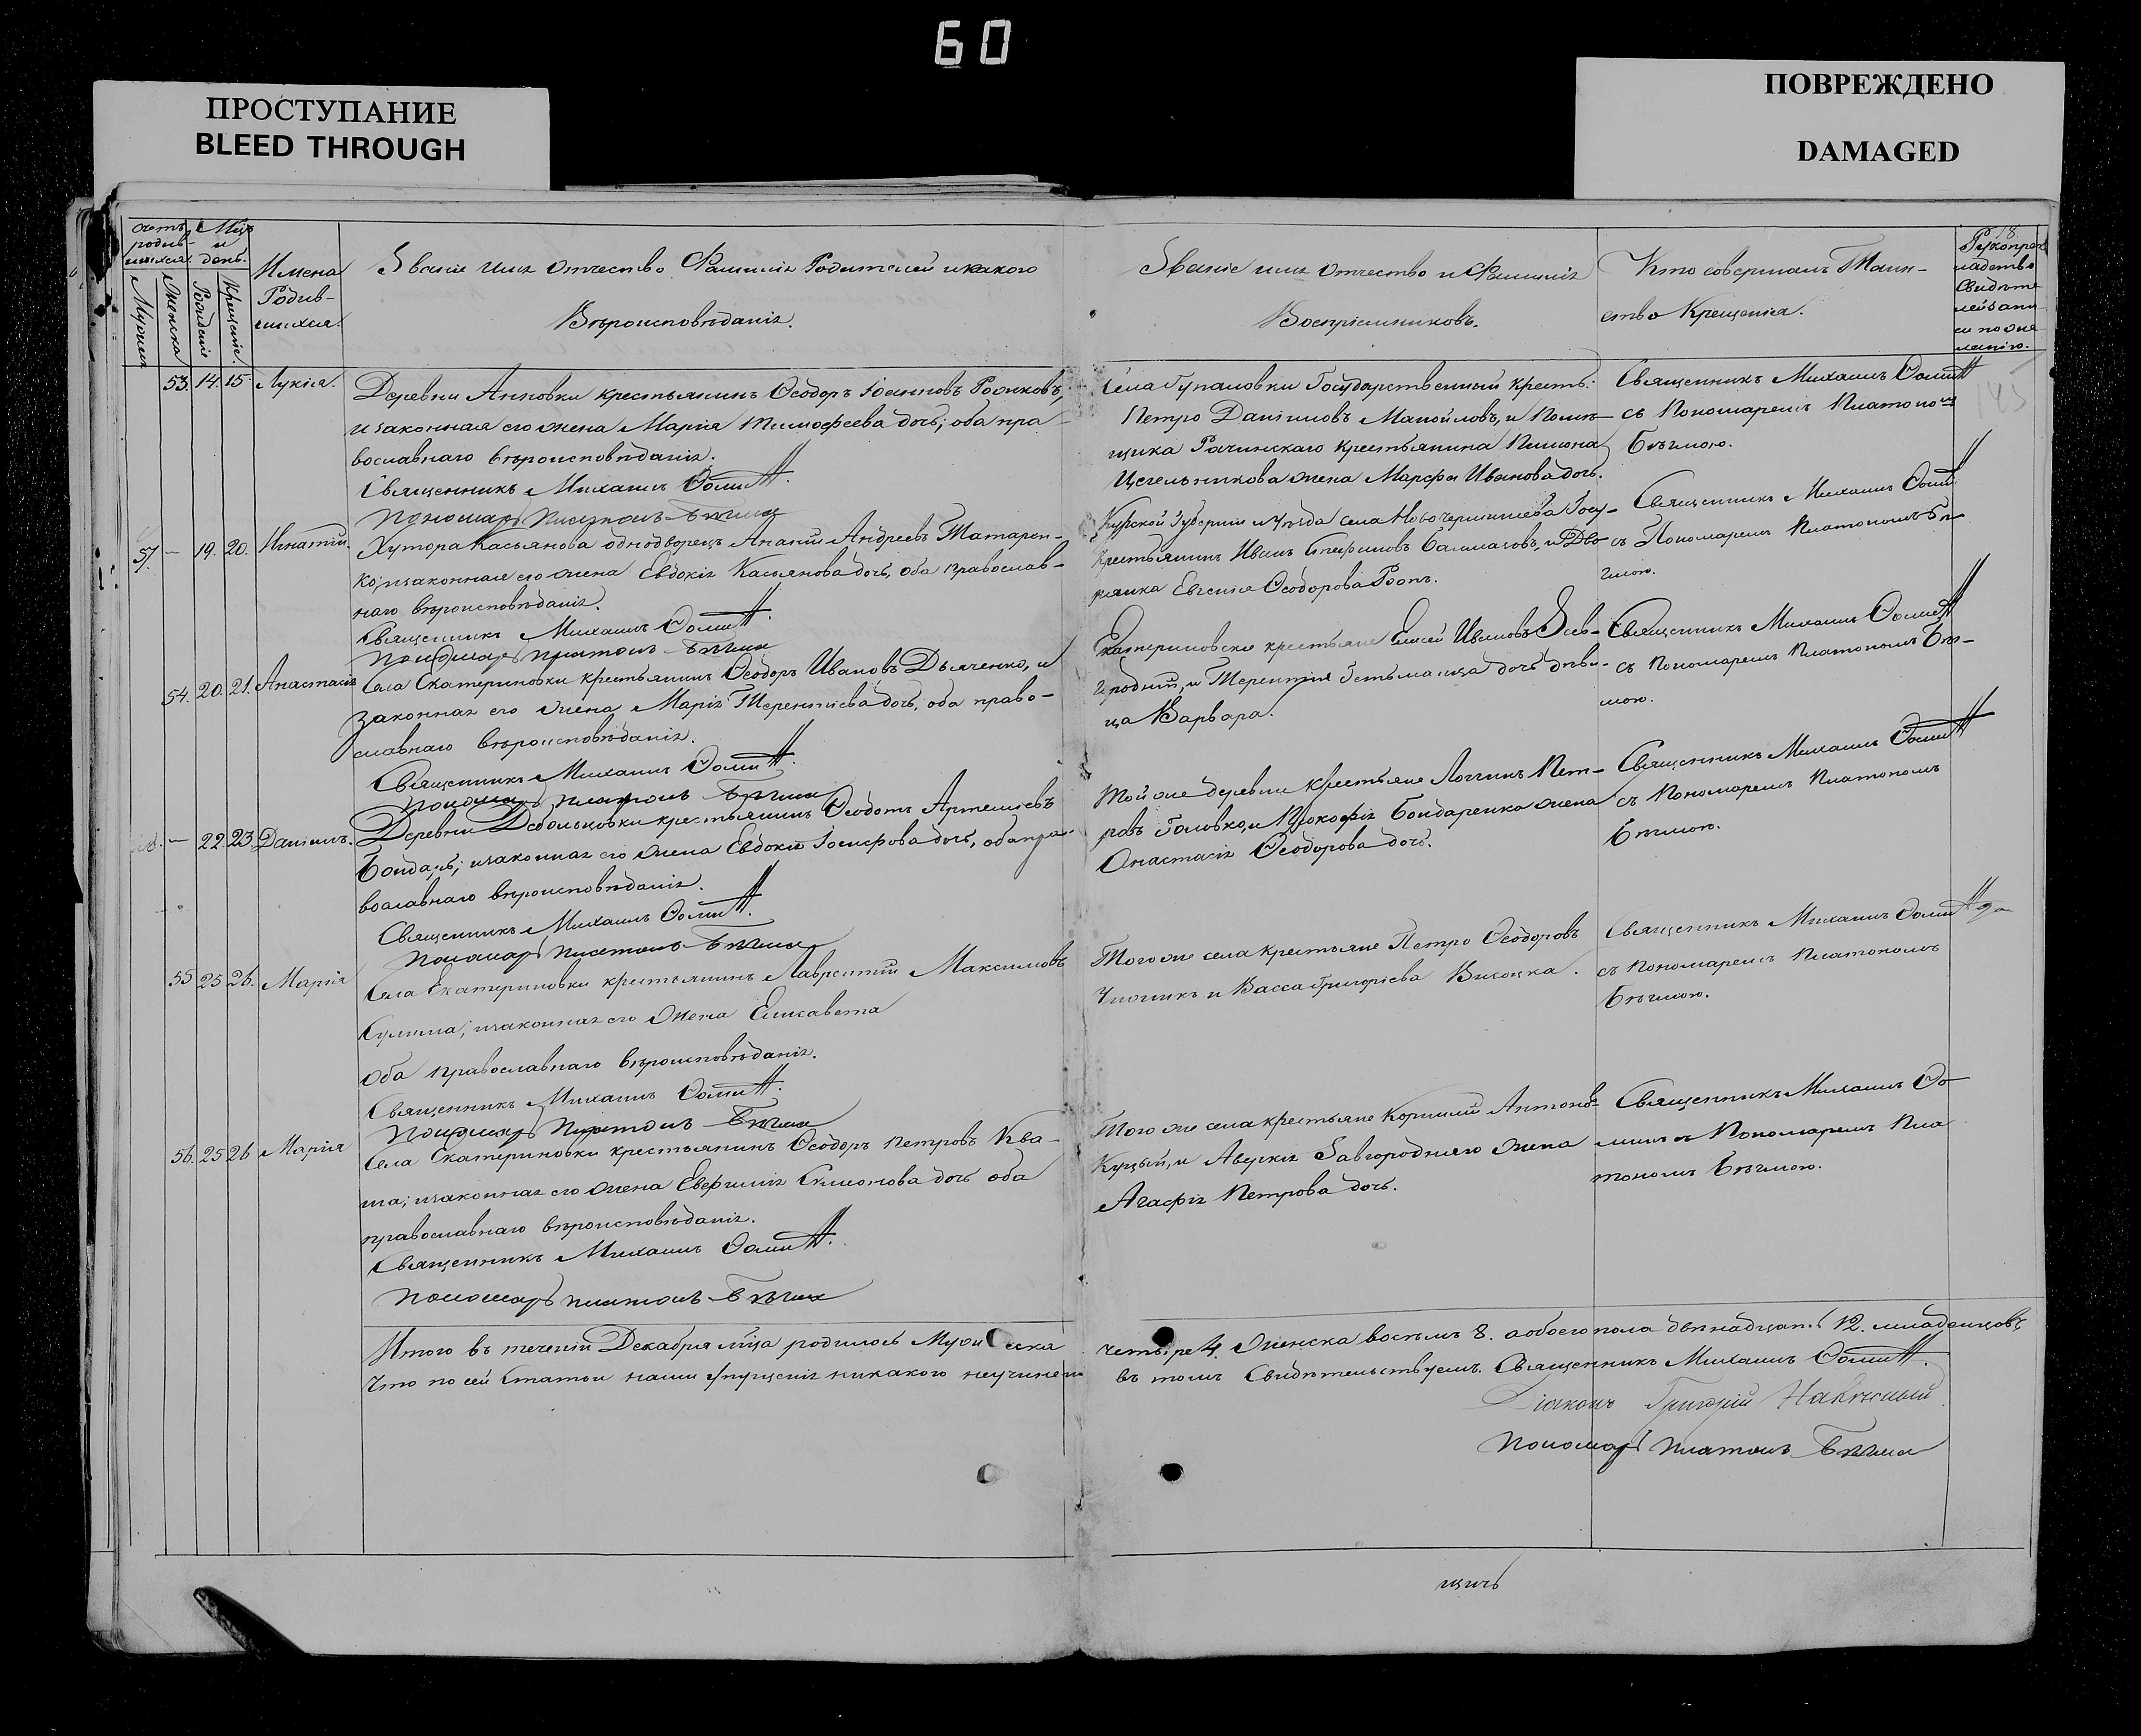 60
ПРОСТУПАНИЕ
BLEED THROUGH
ПОВРЕЖДЕНО
DAMAGED
Счетъ родив-шихся.
Мужеск.
Женска
Мцъ и день.
Рожденіе
Крещеніе.
Имена Родив-шихся.
Званіе имя Отчество Фамилія Родителей и какого
Вѣроисповѣданія.
Званіе имя Отчество и Фамилія
Воспріемниковъ.
Кто совершалъ Таин-
ство Крещенія.
18.
Рукопри
кладство
Свидѣте
лей запи
си по же
ланію.
145
53. 14. 15. Лукія.
Деревни Анновки крестьянинъ Ѳеодоръ Іоанновъ Рожковъ,
и законная его жена Марія Тимофеева дочь; оба пра-
вославнаго вѣроисповѣданія.
Священникъ Михаилъ
Пономарь Платонъ
Села Гупаловки Государственный крестья:
Петро Даниловъ Манойловъ, и Помѣ-
щика Рачинскаго крестьянина Пимона
Цегельникова жена Марфа Иванова дочь.
Священникъ Михаилъ
съ Пономаремъ Платоном
57. — 19. 20. Игнатій.
Хутора Касьянова однодворецъ Ананій Андреевъ Татарен-
ко; и законная его жена Евдокія Касьянова дочь, оба православ-
наго вѣроисповѣданія.
Священникъ Михаилъ
Пономарь Платонъ
Курской Губерніи и Уѣзда села Государ-
Крестьянинъ Иванъ Стефановъ Балмасовъ, и Дво-
рянка Евгенія Ѳеодорова Роопъ.
Священникъ Михаилъ
съ Пономаремъ Платономъ
54. 20. 21. Анастасія
Села Екатериновки крестьянинъ Ѳеодоръ Ивановъ Дьяченко, и
законная его жена Марія Терентіева дочь, оба право-
славнаго вѣроисповѣданія.
Священникъ Михаилъ
Пономарь Платонъ
Екатериновски крестьяне Елисей Ивановъ Заво-
городній, и Терентія Гетьманца дочь дѣви-
ца Варвара.
Священникъ Михаилъ
съ Пономаремъ Платономъ
— 22. 23. Даніилъ.
Деревни крестьянинъ Ѳеодотъ Артемьевъ
Бондарь; и законная его жена Евдокія Іосифова дочь, оба пра-
вославнаго вѣроисповѣданія.
Священникъ Михаилъ
Пономарь Платонъ
Той же деревни крестьяне Логгинъ Пет-
ровъ Головко, и Прокофія Бондаренка жена
Анастасія Ѳеодорова дочь.
Священникъ Михаилъ
съ Пономаремъ Платономъ
55 25 26. Марія
Села Екатериновки крестьянинъ Лаврентій Максимовъ
Кулиша; и законная его жена Елисавета
оба православнаго вѣроисповѣданія.
Священникъ Михаилъ
Пономарь Платонъ
Того же села крестьяне Петро Ѳеодоровъ
Чижикъ и Васса Григоріева Висоцка.
Священникъ Михаилъ
съ Пономаремъ Платономъ
56. 25 26 Марія
Села Екатериновки крестьянинъ Ѳеодоръ Петровъ Ква-
ша; и законная его жена Евфимія Симонова дочь оба
православнаго вѣроисповѣданія.
Священникъ Михаилъ
Пономарь Платонъ
Того же села крестьяне Корнилій Антоновъ
Куцый, и Аверкія Завгородняго жена
Агафія Петрова дочь.
Священникъ Михаилъ
съ Пономаремъ Пла
тономъ
Итого въ теченіи Декабря мца родилось Мужеска четыре 4. Женска восемь 8. а обоего пола двенадцать 12. младенцовъ,
Что по сей статьи нами упущенія никакого неучинено въ томъ Свидѣтельствуемъ. Священникъ Михаилъ
Діаконъ Григорій
Пономарь Платонъ